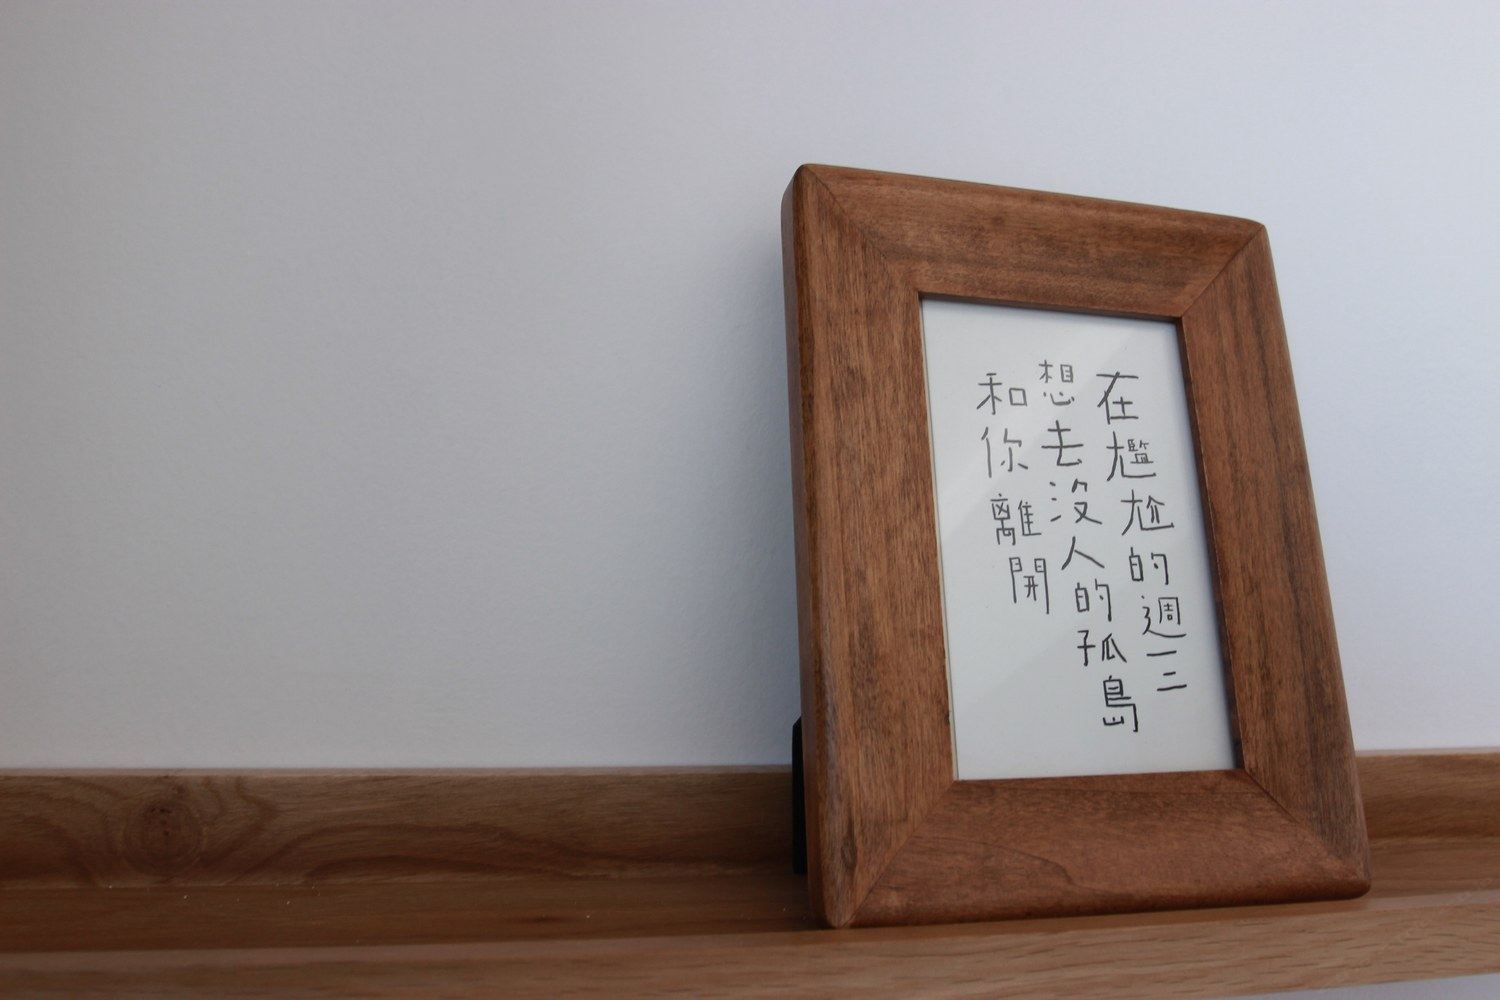 在尷尬的週三
想去沒人的孤島
和你離開